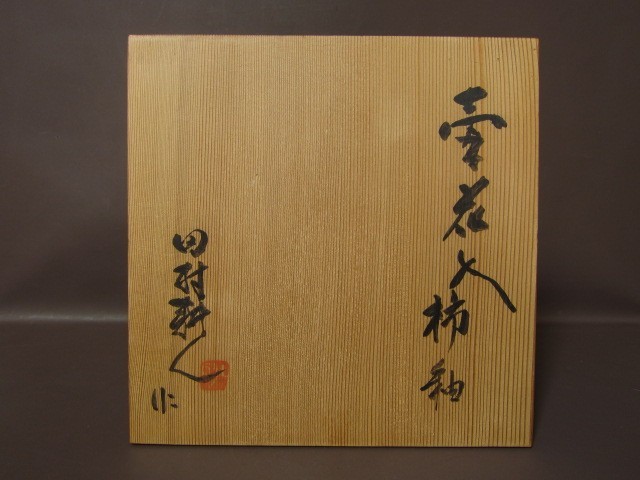 花入 柿釉
田村耕一
作